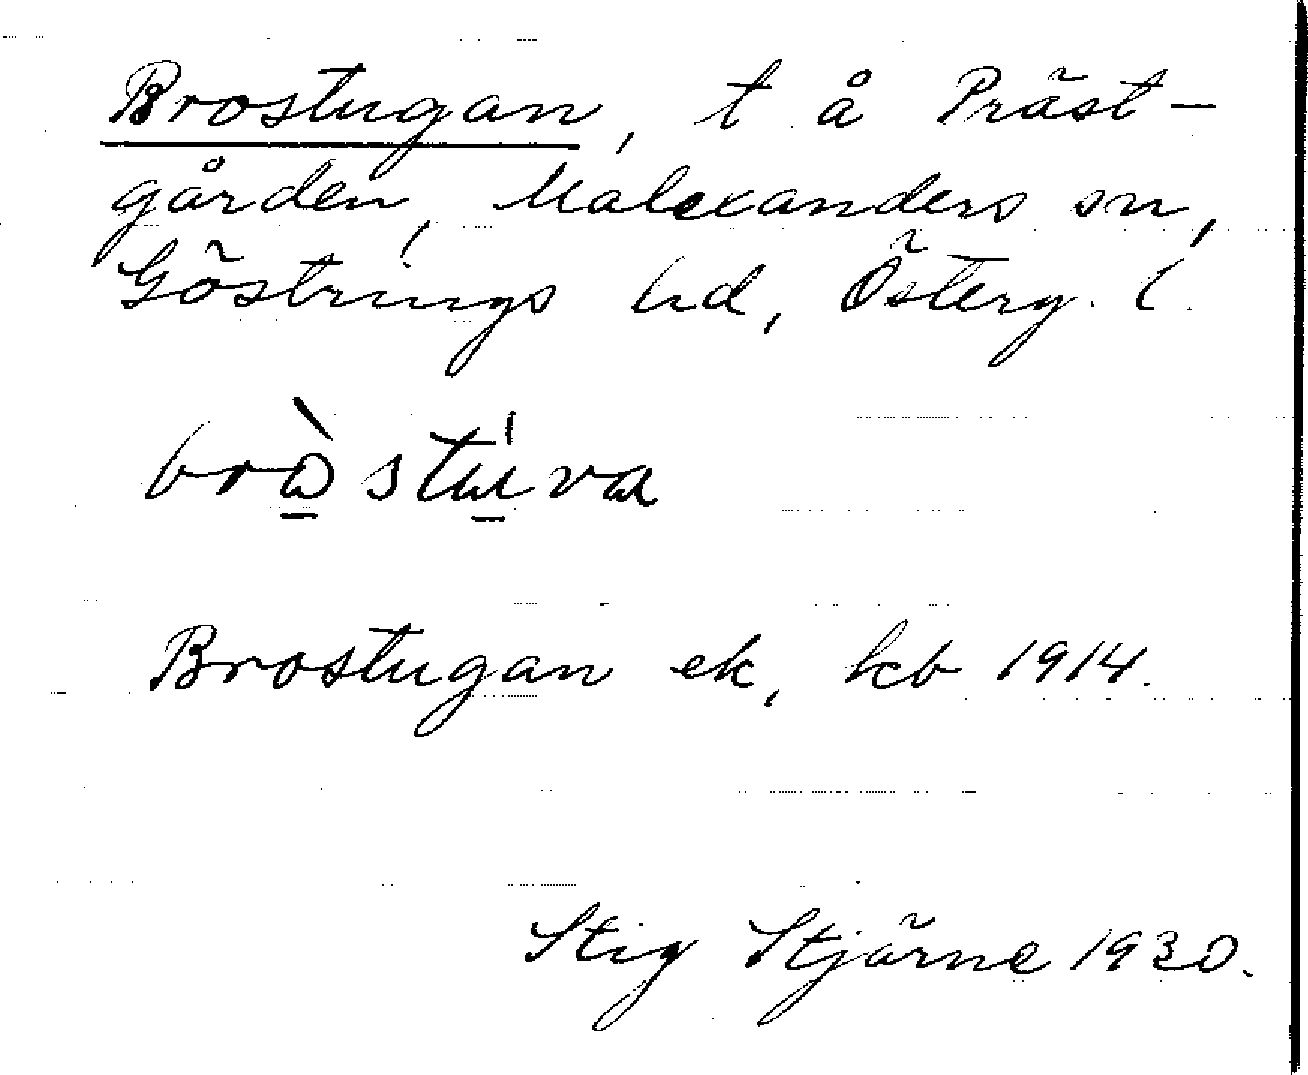 Brostugan, t å Präst-
gården, Malexanders sn,
Göstrings hd, Österg. l.
bròstúva
Brostugan ek, kb 1914.
Stig Stjärne 1930.